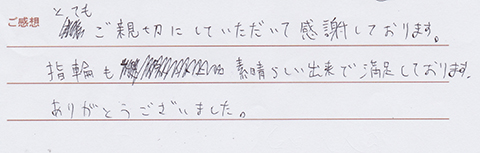 ご感想
とても
ご親切にしていただいて感謝しております。
指輪も素晴らしい出来で満足しております。
ありがとうございました。